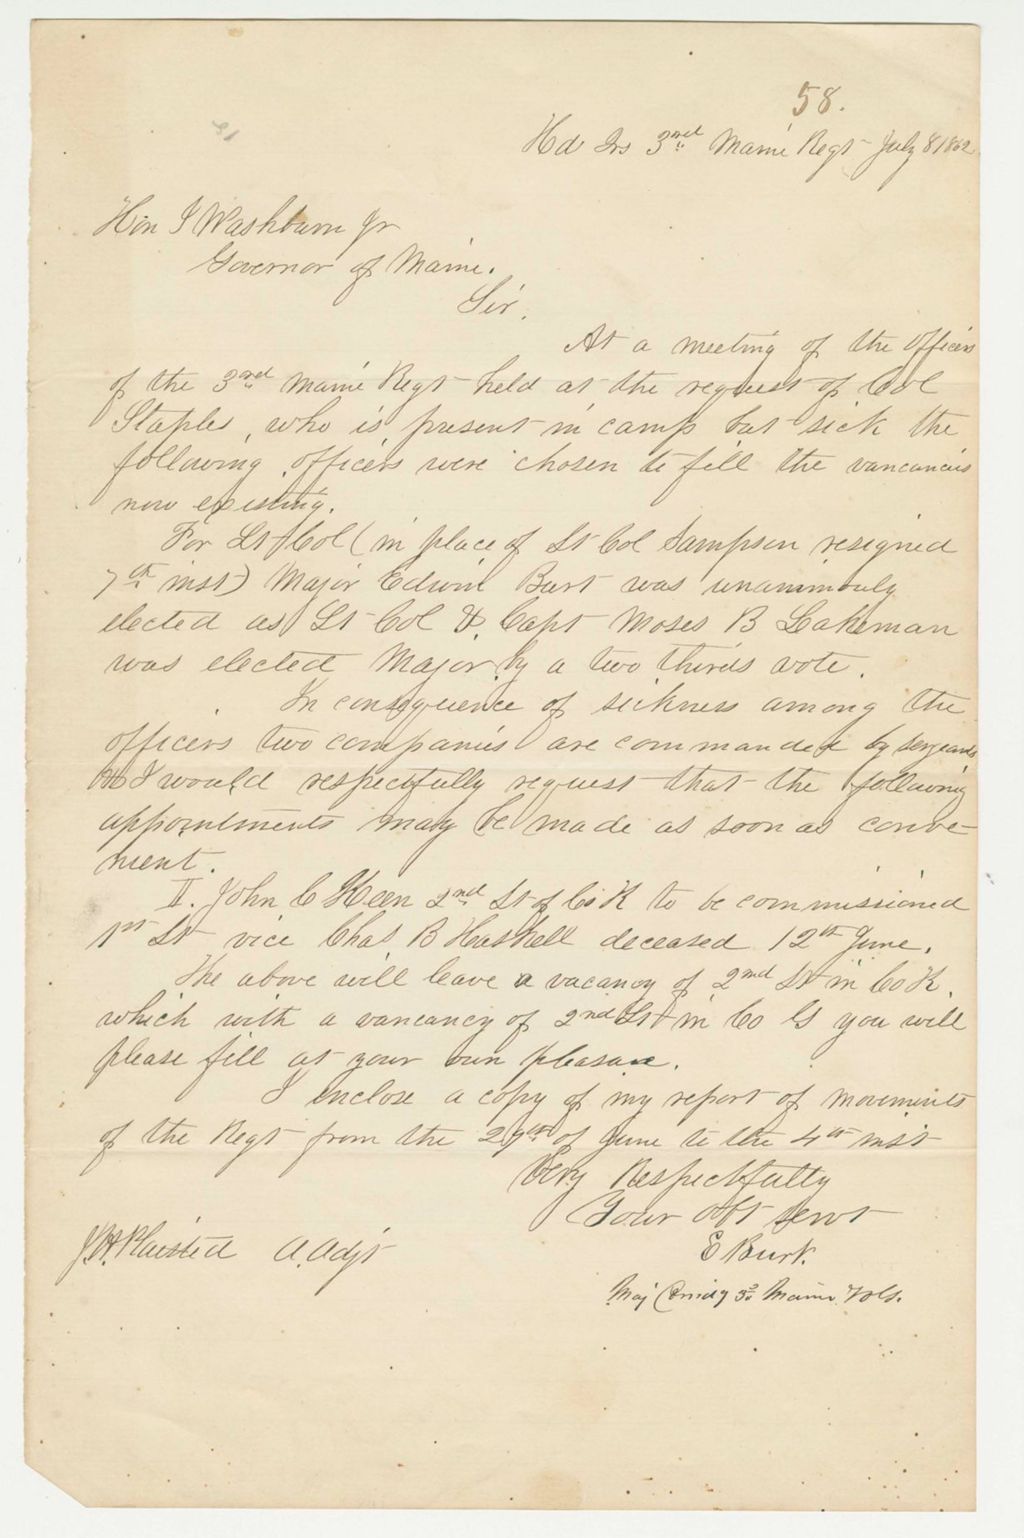 58.
Hd Qrs 3rd Maine Regt July 8 1862
Hon I Washburn Jr
Governor of Maine.
Sir,
At a meeting of the officers
of the 3rd Maine Regt held at the request of Col
Staples, who is present in camp but sick the
following officers were chosen to fill the vancancies
now existing.
For Lt Col (in place of Lt Col Sampson resigned
7th inst) Major Edwin Burt was unanimously
elected as Lt Col & Capt Moses B Lakeman
was elected Major by a two thirds vote.
In consequence of sickness among the
officers two companies are commanded by sergeants
I would respectfully request that the following
appointments may be made as soon as conve-
nient.
I. John C Keen 2nd Lt of Co K to be commissioned
1st Lt vice Chas B Haskell deceased 12th June.
The above will leave a vacancy of 2nd Lt in Co K.
which with a vancancy of 2nd Lt in Co G you will
please fill at your own pleasure.
I enclose a copy of my report of movements
of the Regt from the 29th of June to the 4th inst
Very Respectfully
Your obt servt
E Burt.
Maj Comdg 3d Maine Vols.
J.H. Plaisted A. Adjt